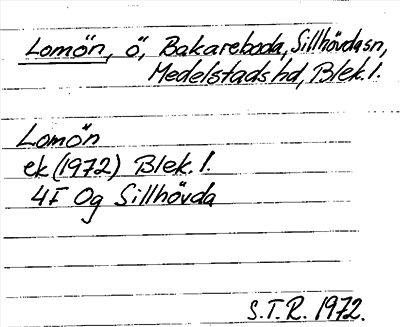 Lomön, ö, Bakareboda, Sillhövdasn,
Medelstads hd, Blek. l.
Lomön
ek (1972) Blek. l.
4F 0g Sillhövda
S.T.R. 1972.